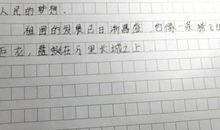 人民的梦想。
祖国的发展已日渐昌盛,它像一条腾飞
巨龙,盘踞在万里长城之上